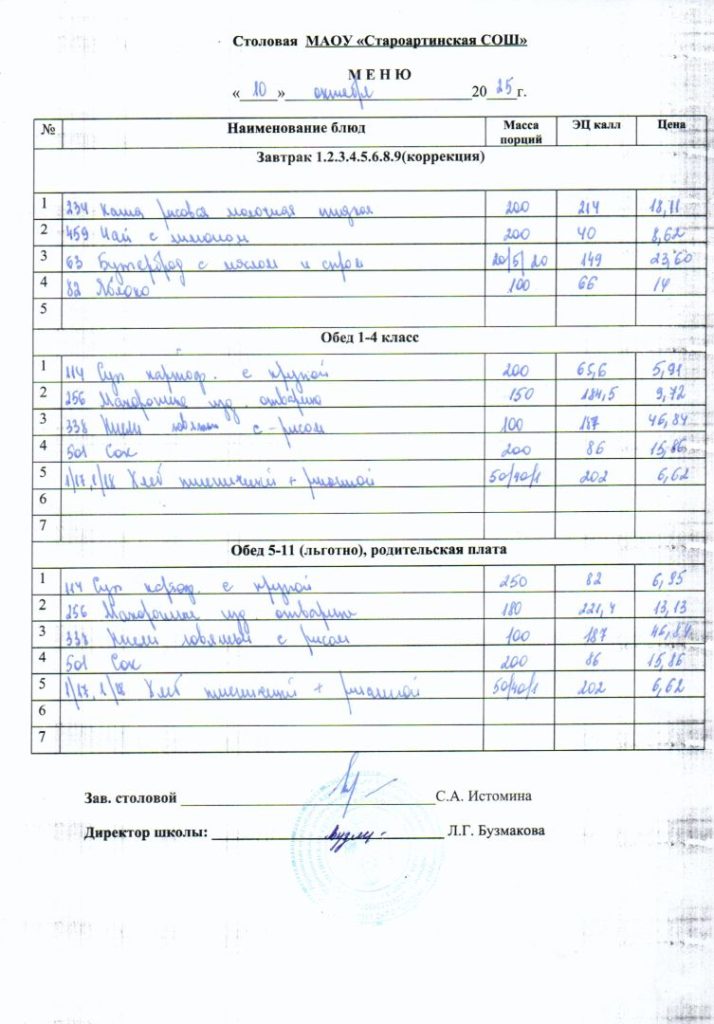 Столовая МАОУ «Староартинская СОШ»
М Е Н Ю
« 10 » октября 20 25 г.
№ Наименование блюд Масса порций ЭЦ калл Цена
Завтрак 1.2.3.4.5.6.8.9(коррекция)
1 234 Каша рисовая молочная жидкая 200 214 18,11
2 459 Чай с лимоном 200 40 8,62
3 63 Бутерброд с маслом и сыром 20/5/20 149 23,60
4 82 Яблоко 100 66 14
5
Обед 1-4 класс
1 114 Суп картоф. с крупой 200 65,6 5,91
2 256 Макаронные изд. отварные 150 184,5 9,72
3 338 говяжьи с рисом 100 187 46,84
4 501 Сок 200 86 15,86
5 1/17, 1/18 Хлеб пшеничный + ржаной 50/40/1 202 6,62
6
7
Обед 5-11 (льготно), родительская плата
1 114 Суп картоф. с крупой 250 82 6,95
2 256 Макаронные изд. отварные 180 221,4 13,13
3 338 говяжьи с рисом 100 187 46,84
4 501 Сок 200 86 15,86
5 1/17, 1/18 Хлеб пшеничный + ржаной 50/40/1 202 6,62
6
7
Зав. столовой С.А. Истомина
Директор школы: Л.Г. Бузмакова